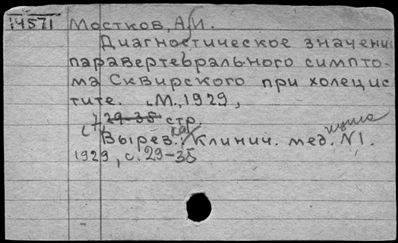 14571 Мостков, А.И.
Диагностическое значени
паравертебрального симпто-
ма Сквирского при холецис
тите. М., 1929,
29-35 стр.
Вырез. Клинич. мед. №1.
1929, с. 29-35